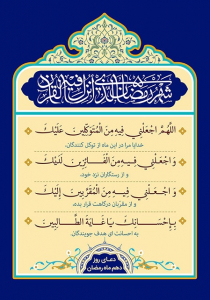 شهر رمضان الذی انزل فیه القرآن
اَللّهُمَّ اجْعَلْنِي فِيهِ مِنَ الْمُتَوَكِّلِينَ عَلَيْكَ
خدایا مرا در این ماه از توکل کنندگان،
وَ اجْعَلْنِي فِيهِ مِنَ الْفَائِزِينَ لَدَيْكَ
و از رستگاران نزد خود،
وَ اجْعَلْنِي فِيهِ مِنَ الْمُقَرَّبِينَ إِلَيْكَ
و از مقربان درگاهت قرار بده،
بِإِحْسَانِكَ يَا غَايَةَ الطَّالِبِينَ
به احسانت ای هدف جویندگان.
دعای روز
دهم ماه رمضان